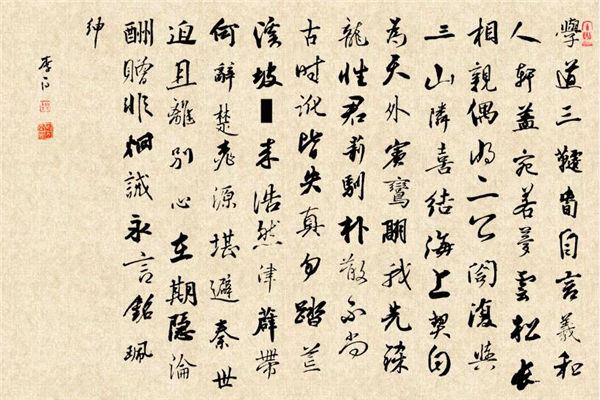 學道三旾自言羲和
人軒蓋宛若夢雲松長
相親偶将二公閤復與
三山隣喜結海上契自
為天外賓鸞翮我先鎩
龍性君莫馴朴散不尚
古時訛皆失真勿踏荒
溪坡来浩然津薜帶
何辭楚桃源堪避秦世
迫且離別心在期隱淪
酬贈非炯誡永言銘珮
紳
李白